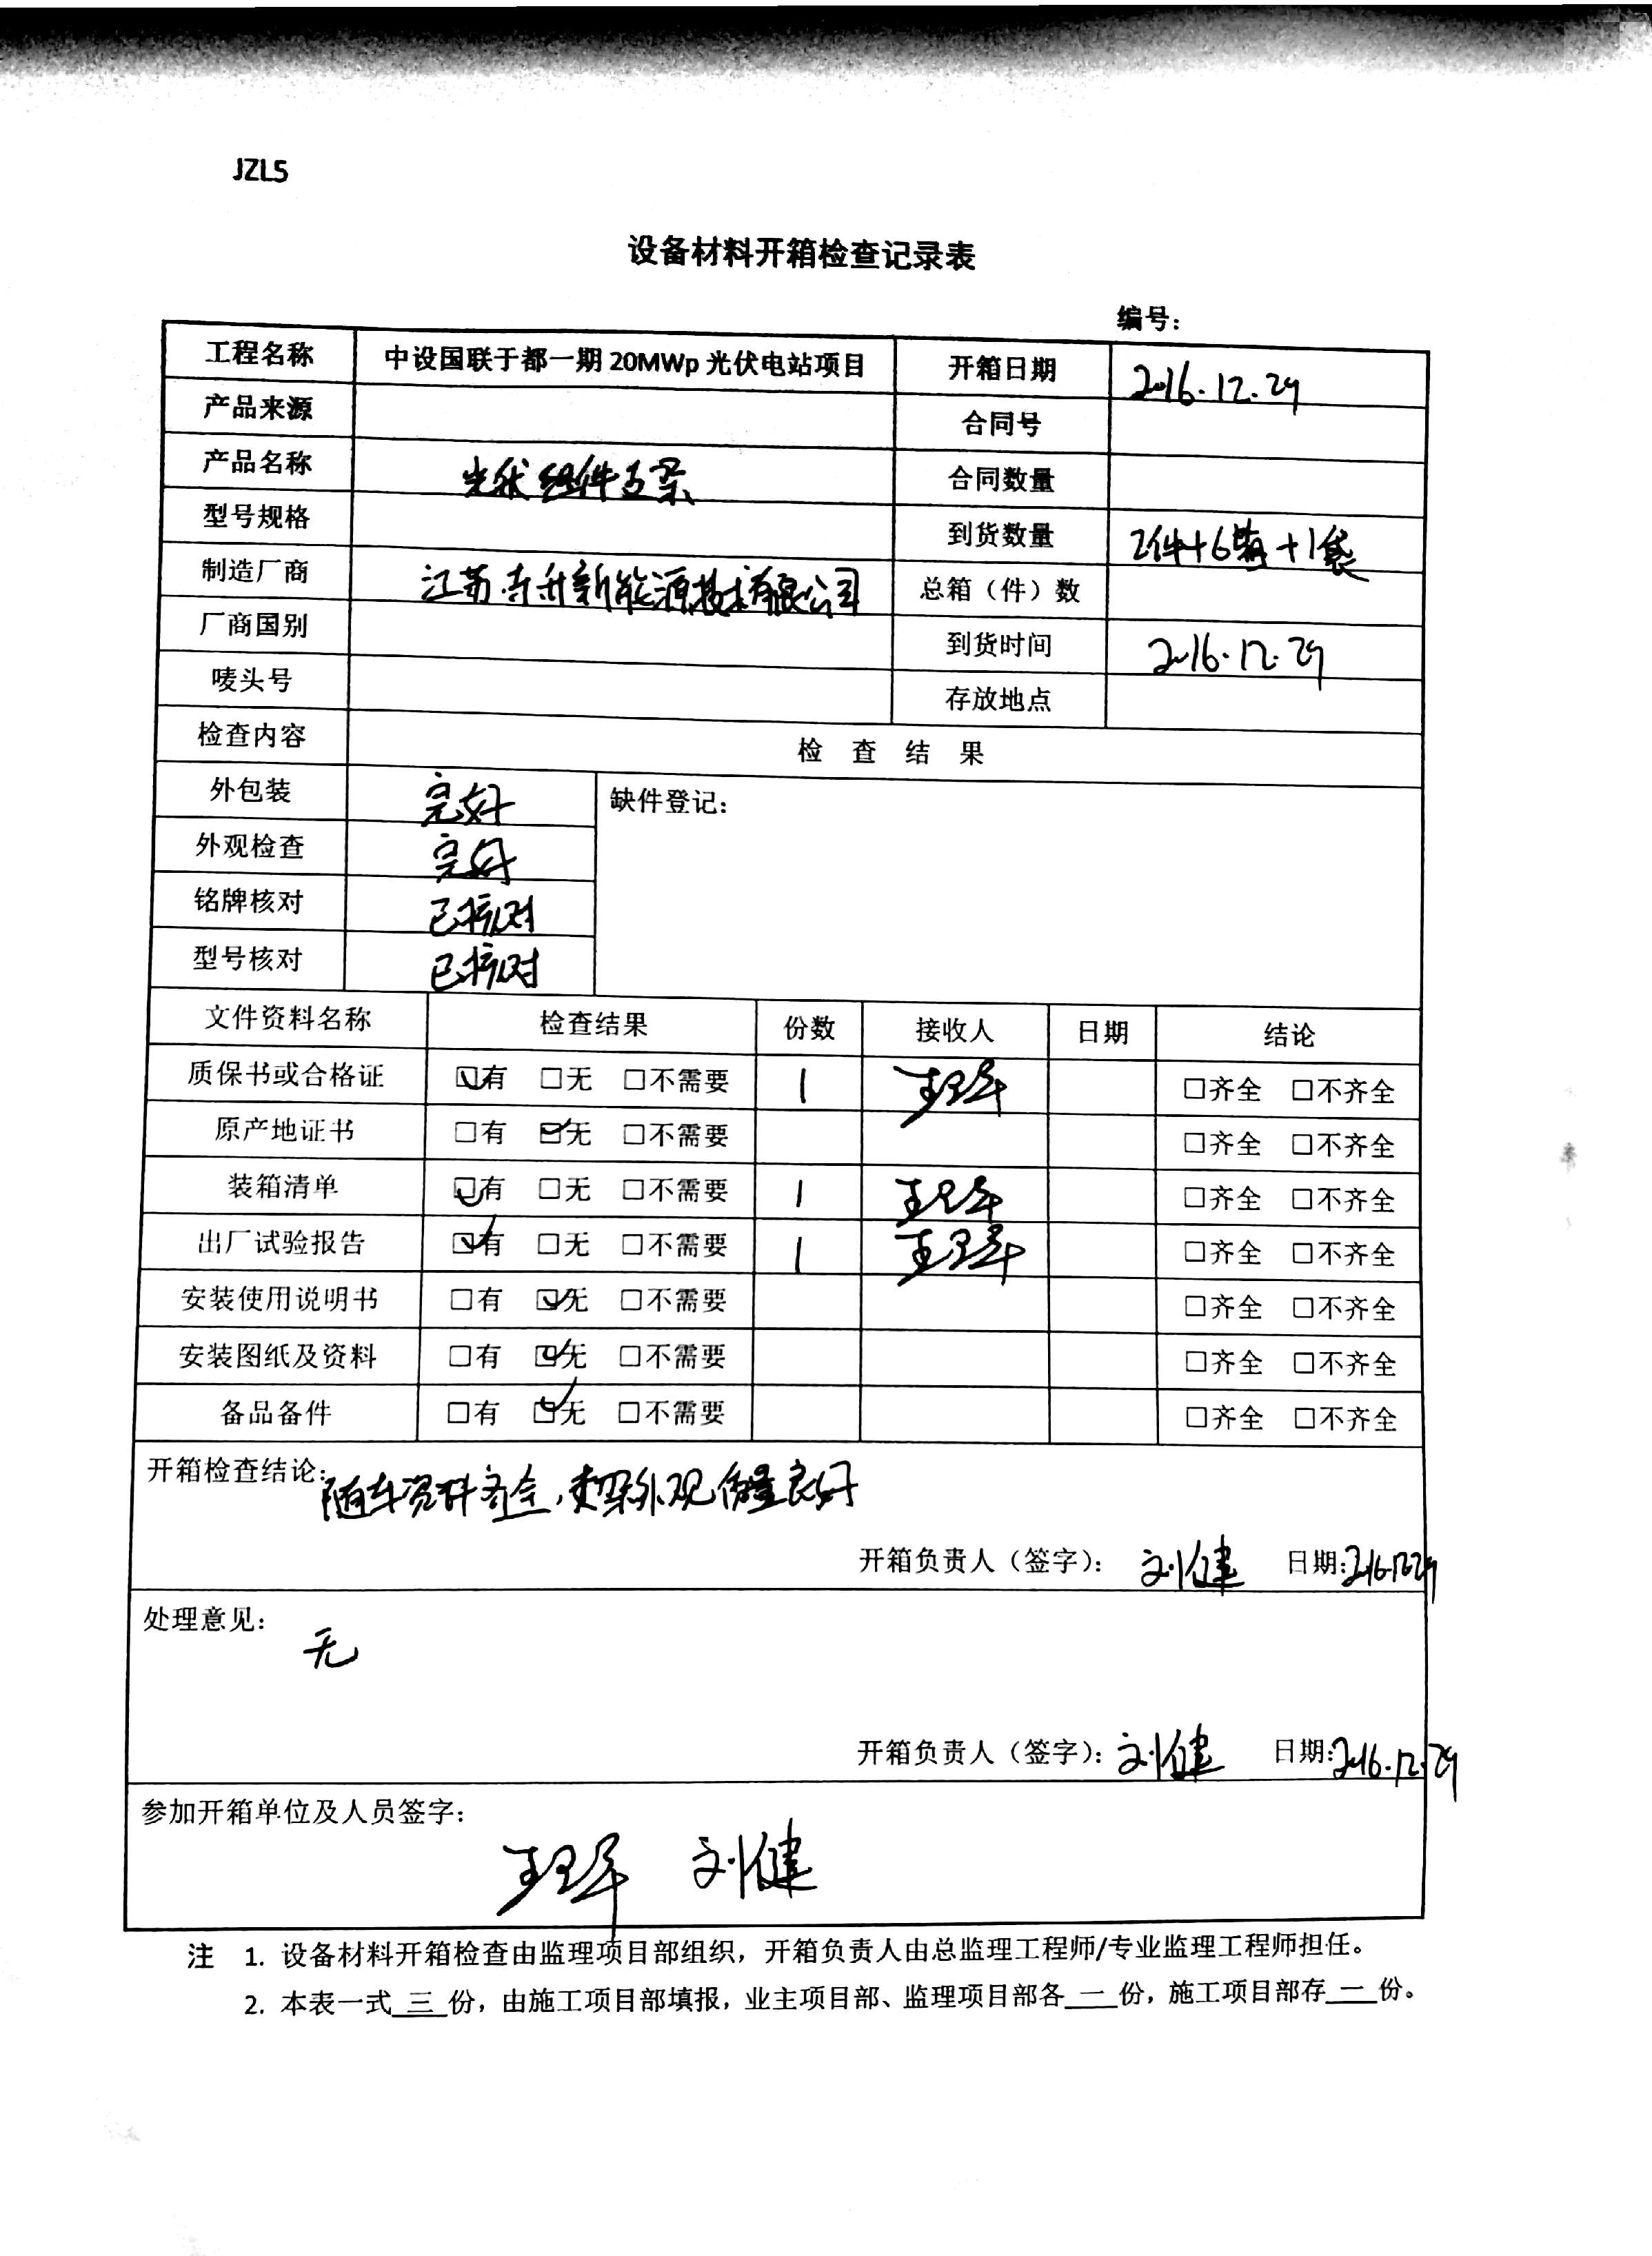 JZL5
设备材料开箱检查记录表
编号：
工程名称 中设国联于都一期 20MWp 光伏电站项目 开箱日期 2016.12.29
产品来源 合同号
产品名称 光伏组件支架 合同数量
型号规格 到货数量 2件+6箱+1袋
制造厂商 江苏 新能源技术有限公司 总箱（件）数
厂商国别 到货时间 2016.12.29
唛头号 存放地点
检查内容 检 查 结 果
外包装 完好 缺件登记：
外观检查 完好
铭牌核对 已核对
型号核对 已核对
文件资料名称 检查结果 份数 接收人 日期 结论
质保书或合格证 ☑有 □无 □不需要 1 □齐全 □不齐全
原产地证书 □有 ☑无 □不需要 □齐全 □不齐全
装箱清单 ☑有 □无 □不需要 1 □齐全 □不齐全
出厂试验报告 ☑有 □无 □不需要 1 □齐全 □不齐全
安装使用说明书 □有 ☑无 □不需要 □齐全 □不齐全
安装图纸及资料 □有 ☑无 □不需要 □齐全 □不齐全
备品备件 □有 ☑无 □不需要 □齐全 □不齐全
开箱检查结论： 随车资料齐全，支架外观质量良好
开箱负责人（签字）： 刘健 日期：2016.12.29
处理意见：
无
开箱负责人（签字）： 刘健 日期：2016.12.29
参加开箱单位及人员签字：
刘健
注 1. 设备材料开箱检查由监理项目部组织，开箱负责人由总监理工程师/专业监理工程师担任。
2. 本表一式 三 份，由施工项目部填报，业主项目部、监理项目部各 一 份，施工项目部存 一 份。